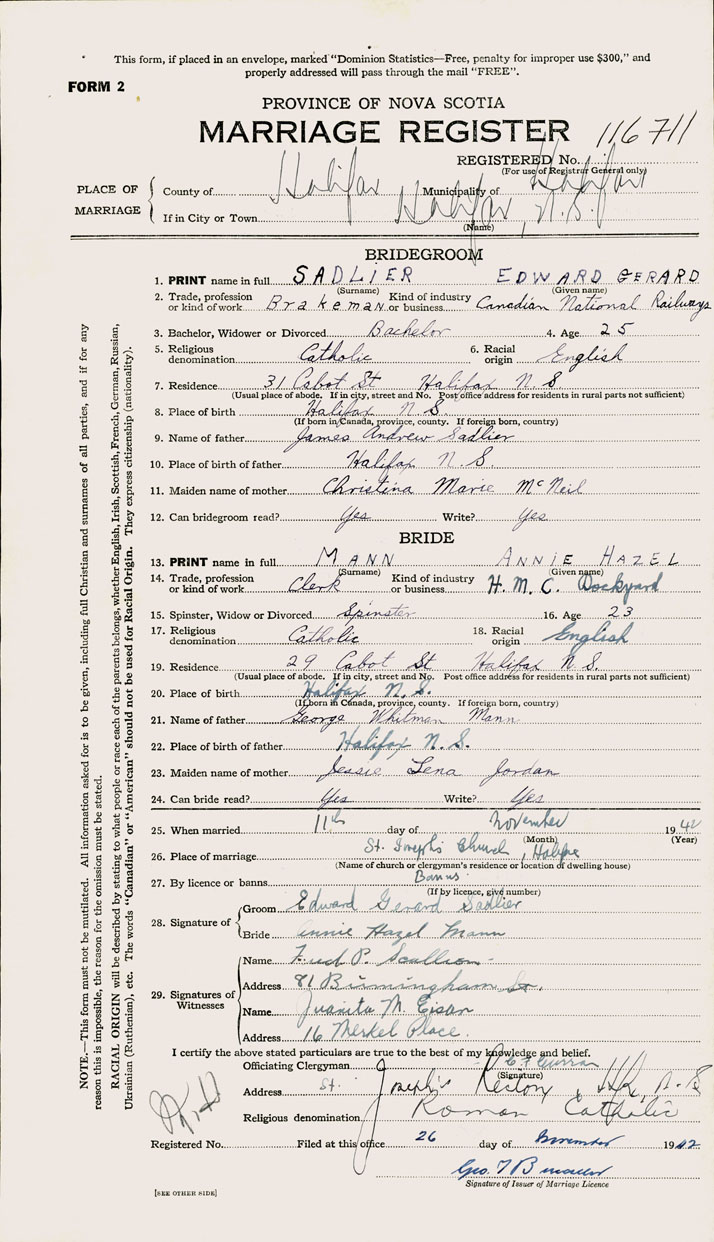 This form, if placed in an envelope, marked "Dominion Statistics—Free, penalty for improper use $300," and
properly addressed will pass through the mail "FREE".
FORM 2
PROVINCE OF NOVA SCOTIA
MARRIAGE REGISTER 116711
REGISTERED No.
(For use of Registrar General only)
PLACE OF MARRIAGE
County of Halifax Municipality of Halifax
If in City or Town Halifax, N.S.
(Name)
BRIDEGROOM
1. PRINT name in full SADLIER EDWARD GERARD
(Surname) (Given name)
2. Trade, profession or kind of work Brakeman Kind of industry or business Canadian National Railways
3. Bachelor, Widower or Divorced Bachelor 4. Age 25
5. Religious denomination Catholic 6. Racial origin English
7. Residence 31 Cabot St Halifax N.S.
(Usual place of abode. If in city, street and No. Post office address for residents in rural parts not sufficient)
8. Place of birth Halifax N.S.
(If born in Canada, province, county. If foreign born, country)
9. Name of father James Andrew Sadlier
10. Place of birth of father Halifax N.S.
11. Maiden name of mother Christina Marie McNeil
12. Can bridegroom read? Yes Write? Yes
BRIDE
13. PRINT name in full MANN ANNIE HAZEL
(Surname) (Given name)
14. Trade, profession or kind of work Clerk Kind of industry or business H.M.C. Dockyard
15. Spinster, Widow or Divorced Spinster 16. Age 23
17. Religious denomination Catholic 18. Racial origin English
19. Residence 29 Cabot St Halifax N.S.
(Usual place of abode. If in city, street and No. Post office address for residents in rural parts not sufficient)
20. Place of birth Halifax N.S.
(If born in Canada, province, county. If foreign born, country)
21. Name of father George Whitman Mann
22. Place of birth of father Halifax N.S.
23. Maiden name of mother Jessie Lena Jordan
24. Can bride read? Yes Write? Yes
25. When married 11th day of November 1942
(Month) (Year)
26. Place of marriage St. Joseph's Church, Halifax
(Name of church or clergyman's residence or location of dwelling house)
27. By licence or banns Banns
(If by licence, give number)
28. Signature of
Groom Edward Gerard Sadlier
Bride Annie Hazel Mann
29. Signatures of Witnesses
Name Fred P. Scallion
Address 81 Birmingham St.
Name Juanita M. Eisan
Address 16 Merkel Place.
I certify the above stated particulars are true to the best of my knowledge and belief.
Officiating Clergyman Curran
(Signature)
Address St. Joseph's Rectory, Hfx, N.S
Religious denomination Roman Catholic
Registered No. Filed at this office 26 day of November 1942
Geo.
Signature of Issuer of Marriage Licence
[SEE OTHER SIDE]
NOTE.—This form must not be mutilated. All information asked for is to be given, including full Christian and surnames of all parties, and if for any
reason this is impossible, the reason for the omission must be stated.
RACIAL ORIGIN will be described by stating to what people or race each of the parents belongs, whether English, Irish, Scottish, French, German, Russian,
Ukrainian (Ruthenian), etc. The words "Canadian" or "American" should not be used for Racial Origin. They express citizenship (nationality).